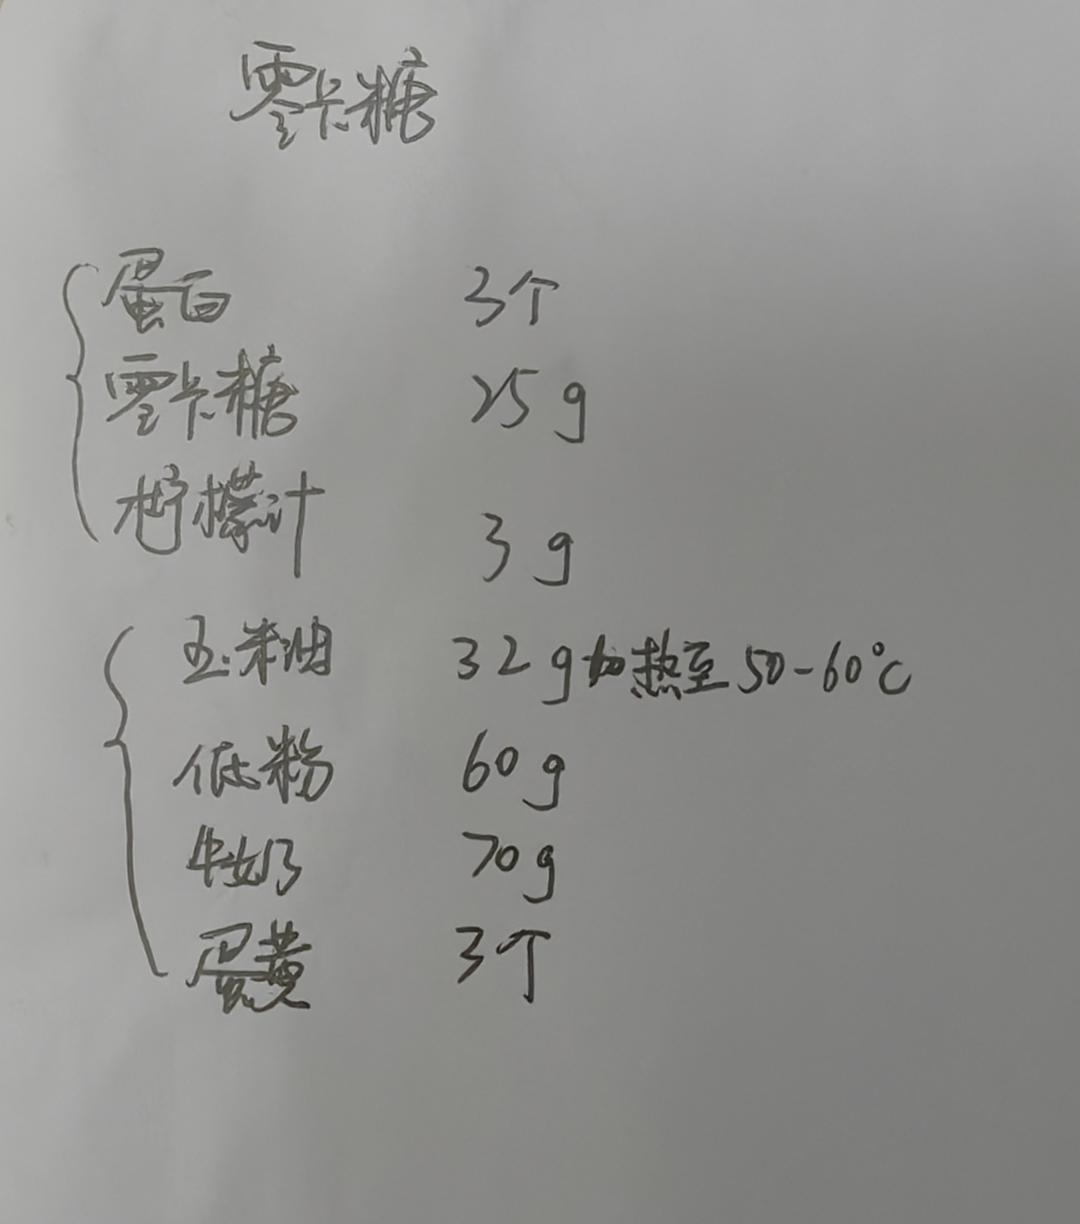 零卡糖
蛋白 3个
零卡糖 25g
柠檬汁 3g
玉米油 32g加热至50-60℃
低粉 60g
牛奶 70g
蛋黄 3个